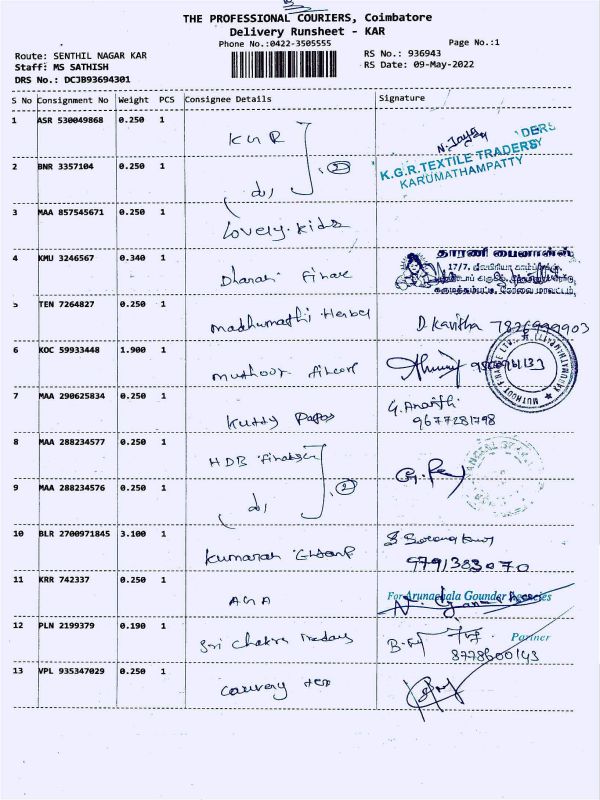 THE PROFESSIONAL COURIERS, Coimbatore
Delivery Runsheet - KAR
Phone No.:0422-3505555
Page No.:1
Route: SENTHIL NAGAR KAR
RS No.: 936943
Staff: MS SATHISH
RS Date: 09-May-2022
DRS No.: DCJB93694301
S No Consignment No Weight PCS Consignee Details Signature
1 ASR 530049868 0.250 1 KGR
K.G.R.TEXTILE TRADERS
KARUMATHAMPATTY
2 BNR 3357104 0.250 1 do, 2
3 MAA 857545671 0.250 1 Lovely kids
4 KMU 3246567 0.340 1 Dharani Finance
தாரணி பைனான்ஸ்
17/7,
5 TEN 7264827 0.250 1 Madhumathi Herbal D. Kavitha
6 KOC 59933448 1.900 1 Muthoot Fincorp
7 MAA 290625834 0.250 1 Kutty Papas G. Ananthi
9677281798
8 MAA 288234577 0.250 1 HDB
9 MAA 288234576 0.250 1 do, 2
10 BLR 2700971845 3.100 1 Kumaran
9791383070
11 KRR 742337 0.250 1 AGA
For Arunachala Gounder Agencies
12 PLN 2199379 0.190 1 Sri Chakra Traders
Partner
8778600143
13 VPL 935347029 0.250 1 Cauvery tex